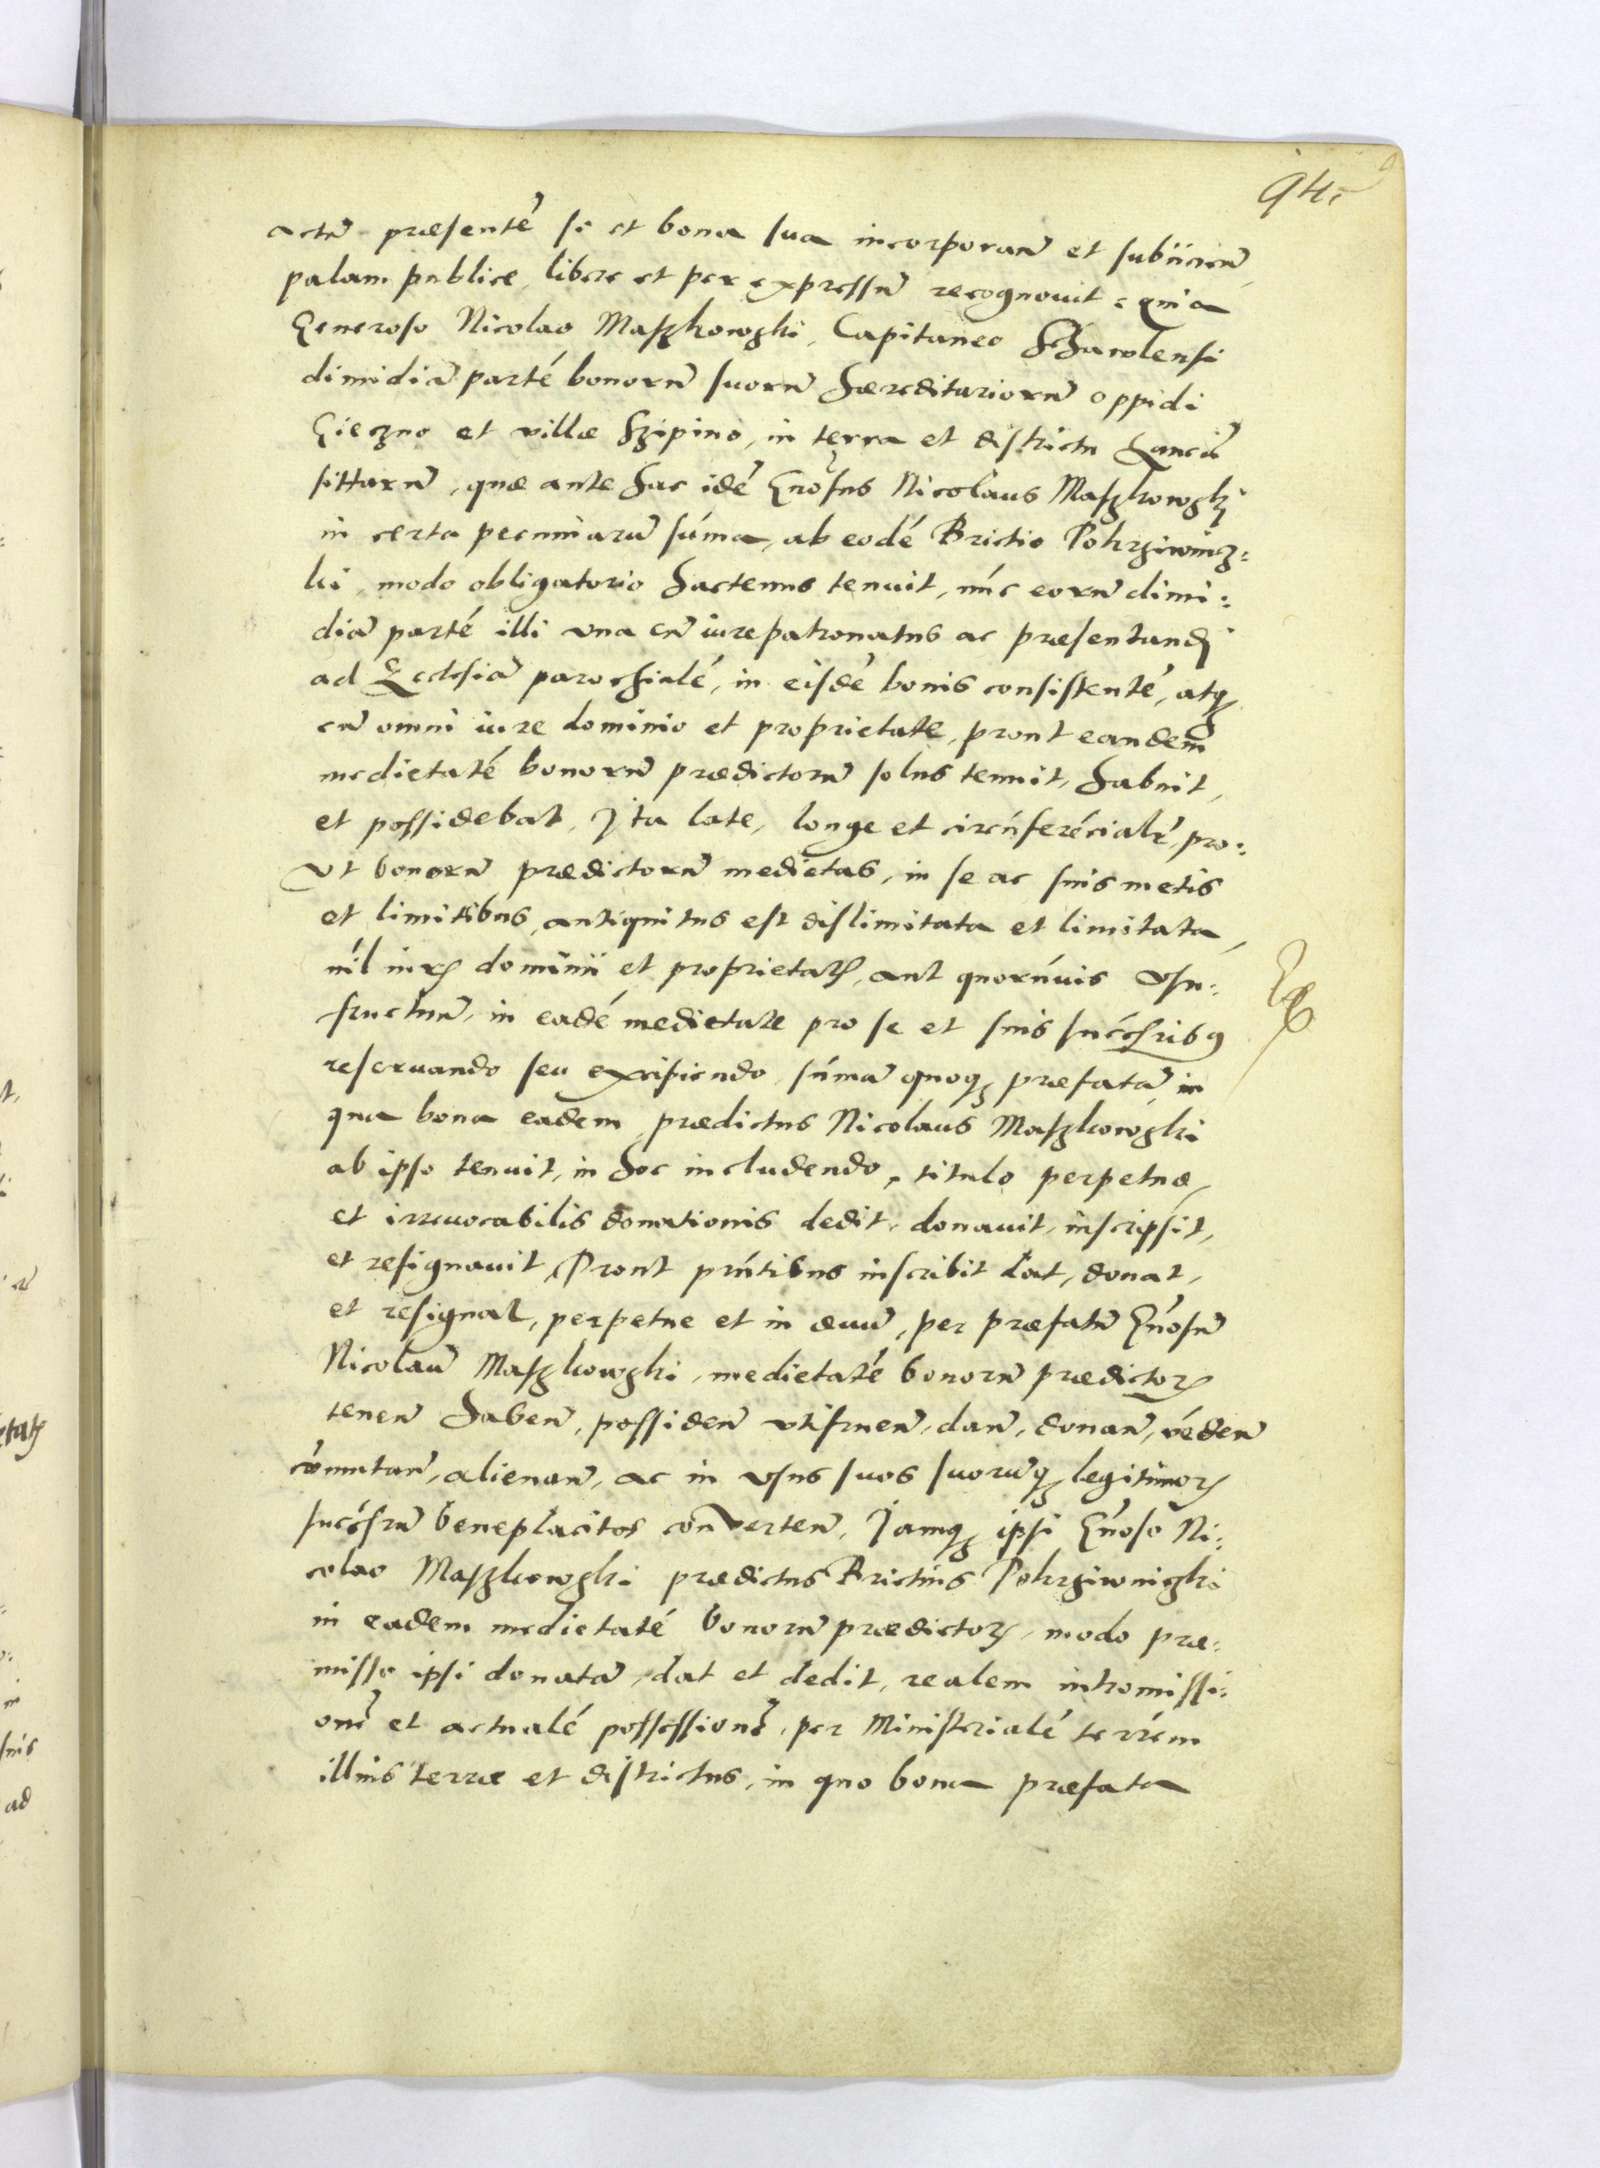 94.
actũ præsentẽ se et bona sua incorporanñ et subiicienñ,
palam publice, libere et per expressum recognouit: quia
Generoso Nicolao Maszkowski, Capitaneo
dimidiã partẽ bonorũ suorũ hæreditariorũ oppidi
Gieczno et villæ Szipino, in terra et districtu Lanciciẽ
sittarũ, quæ ante hac idẽ Gñosus Nicolaus Maszkowskj
in certa pecuniarũ sũma, ab eodẽ Brictio Pokrziwnicz=
ki, modo obligatorio hactenus tenuit, nũc eorũ dimi:
diã partẽ illi vna cũ iurepatronatus ac præsentandj
ad Ecclesiã parochialẽ, in eisdẽ bonis consistentẽ, atq;
cũ omni iure dominio et proprietate, prout eandem
medietatẽ bonorũ prædictorũ solus tenuit, habuit,
et possidebat, Ita late, longe et circũferẽcialr̃, pro:
vt bonorũ prædictorũ medietas, in se ac suis metis
et limitibus, antiquitus est dislimitata et limitata,
nil iuris dominii et proprietatis, aut quorũvis vsu:
fructuũ, in eadẽ medietate pro se et suis succ̃ribq
reseruando seu excipiendo, sũmã quoq; præfatã, in
qua bona eadem, prædictus Nicolaus Maszkowski
ab ipso tenuit, in hoc includendo, titulo perpetuæ,
et irreuocabilis donationis dedit, donauit, inscripsit,
et resignauit, Prout pr̃ntibus inscribit dat, donat,
et resignat, perpetue et in æuũ, per præfatũ Gñosũ
Nicolaũ Maszkowski, medietatẽ bonorũ prædictor;
tenenñ habenñ, possidenñ vtifruenñ, danñ, donanñ, vẽdenñ
cõmutanñ, alienanñ, ac in vsus suos suorũq; legitimor;
succ̃srũ beneplacitos convertenñ, Jamq; ipsi Gñoso Ni:
colao Maszkowski prædictus Brictius Pokrziwniczki
in eadem medietatẽ bonorũ prædictor;, modo præ:
misso ipsi donatã, dat et dedit, realem intromissi:
onẽ et actualẽ possessionẽ, per Ministerialẽ terrẽm
illius terræ et districtus, in quo bona præfata